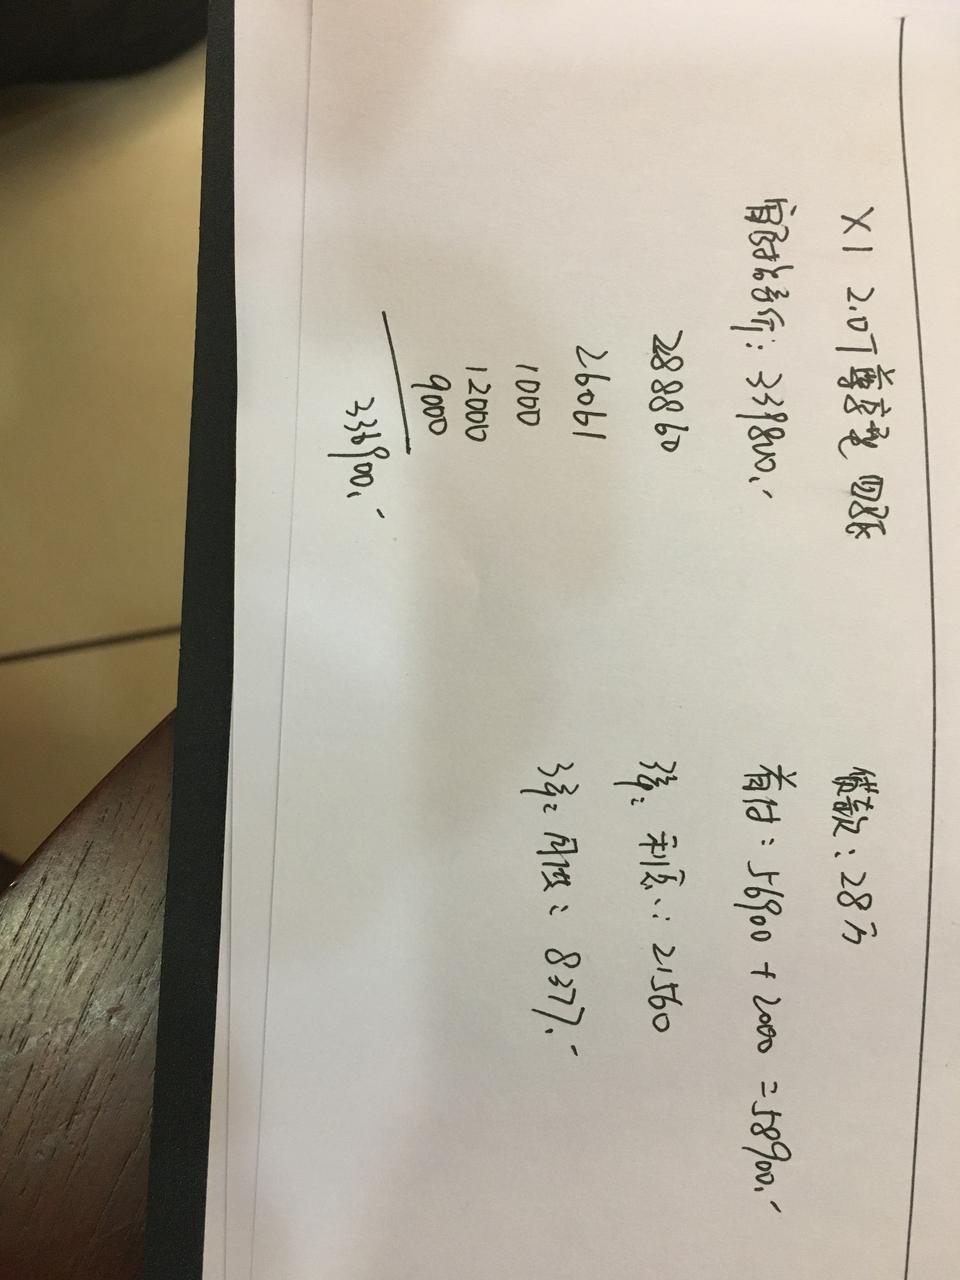 X1 2.0T 尊享型 四驱
官方指导价: 339800.-
288860
26061
1000
12000
9000
336900.-
贷款: 28万
首付: 56900 + 2000 = 58900.-
3年: 利息: 21560
3年: 月供: 8377.-